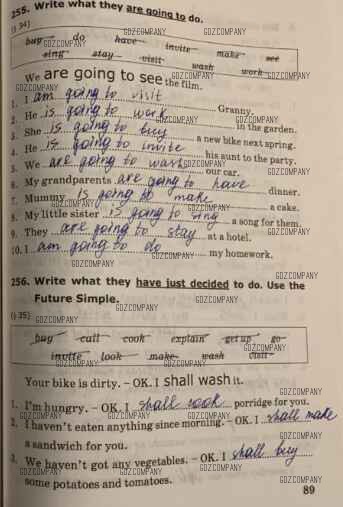 255. Write what they are going to do.
(§ 34)
buy do have invite make see
sing stay visit wash work
We are going to see the film.
1. I am going to visit Granny.
2. He is going to work in the garden.
3. She is going to buy a new bike next spring.
4. He is going to invite his aunt to the party.
5. We are going to wash our car.
6. My grandparents are going to have dinner.
7. Mummy is going to make a cake.
8. My little sister is going to sing a song for them.
9. They are going to stay at a hotel.
10. I am going to do my homework.
256. Write what they have just decided to do. Use the
Future Simple.
(§ 35)
buy call cook explain get up go
invite look make wash visit
Your bike is dirty. – OK. I shall wash it.
1. I'm hungry. – OK. I shall cook porridge for you.
2. I haven't eaten anything since morning. – OK. I shall make
a sandwich for you.
3. We haven't got any vegetables. – OK. I shall buy
some potatoes and tomatoes.
89
GDZCOMPANY